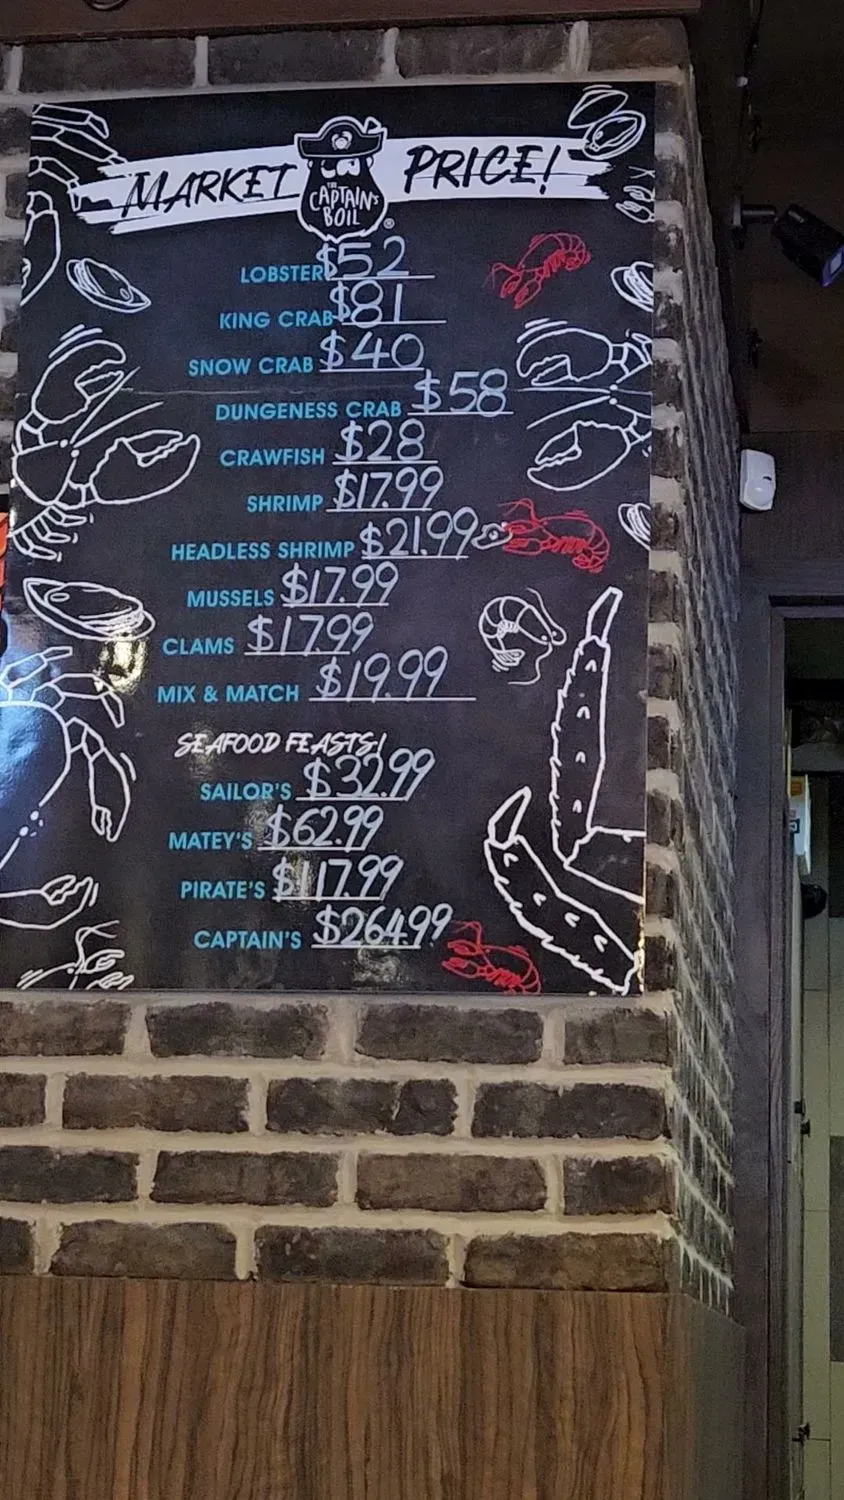 MARKET PRICE!
THE
CAPTAIN'S
BOIL
®
LOBSTER $52
KING CRAB $81
SNOW CRAB $40
DUNGENESS CRAB $58
CRAWFISH $28
SHRIMP $17.99
HEADLESS SHRIMP $21.99
MUSSELS $17.99
CLAMS $17.99
MIX & MATCH $19.99
SEAFOOD FEASTS!
SAILOR'S $32.99
MATEY'S $62.99
PIRATE'S $117.99
CAPTAIN'S $264.99